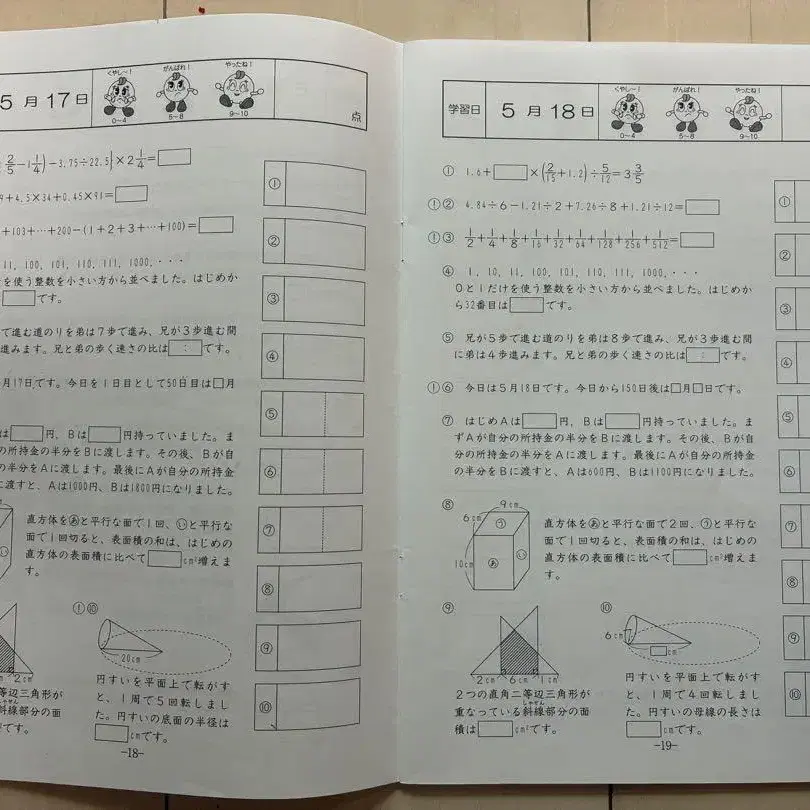 5月17日
くやし〜!
がんばれ!
やったね!
0~4
5~8
9~10
点
2/5-1 1/4)-3.75÷22.5}×2 1/4=□
9+4.5×34+0.45×91=□
+103+…+200-(1+2+3+…+100)=□
11, 100, 101, 110, 111, 1000,・・・
を使う整数を小さい方から並べました。はじめか
□です。
で進む道のりを弟は7歩で進み、兄が3歩進む間
進みます。兄と弟の歩く速さの比は□:□です。
月17日です。今日を1日目として50日目は□月
は□円, Bは□円持っていました。ま
の所持金の半分をBに渡します。その後、Bが自
の半分をAに渡します。最後にAが自分の所持金
渡すと、Aは1000円、Bは1800円になりました。
直方体をあと平行な面で1回、いと平行な
面で1回切ると、表面積の和は、はじめの
直方体の表面積に比べて□cm²増えま
す。
い
①⑩
20cm
2cm
等辺三角形が
斜線部分の面
です。
円すいを平面上で転がす
と、1周で5回転しまし
た。円すいの底面の半径は
□cmです。
①
②
③
④
⑤
⑥
⑦
⑧
⑨
⑩
-18-
学習日
5月18日
くやし〜!
がんばれ!
やったね!
0~4
5~8
9~10
① 1.6+□×(2/15+1.2)÷5/12=3 3/5
①② 4.84÷6-1.21÷2+7.26÷8+1.21÷12=□
①③ 1/2+1/4+1/8+1/16+1/32+1/64+1/128+1/256+1/512=□
④ 1, 10, 11, 100, 101, 110, 111, 1000,・・・
0と1だけを使う整数を小さい方から並べました。はじめか
ら32番目は□です。
⑤ 兄が5歩で進む道のりを弟は8歩で進み、兄が3歩進む間
に弟は4歩進みます。兄と弟の歩く速さの比は□:□です。
①⑥ 今日は5月18日です。今日から150日後は□月□日です。
⑦ はじめAは□円, Bは□円持っていました。ま
ずAが自分の所持金の半分をBに渡します。その後、Bが自
分の所持金の半分をAに渡します。最後にAが自分の所持金
の半分をBに渡すと、Aは600円、Bは1100円になりました。
⑧
9cm
6cm
う
10cm
あ
い
直方体をあと平行な面で2回、うと平行な
面で1回切ると、表面積の和は、はじめの
直方体の表面積に比べて□cm²増えま
す。
⑨
2cm
6cm
1cm
2つの直角二等辺三角形が
重なっている斜線部分の面
しゃせん
積は□cm²です。
⑩
6cm
□cm
円すいを平面上で転がす
と、1周で4回転しまし
た。円すいの母線の長さは
□cmです。
①
②
③
④
⑤
⑥
⑦
⑧
⑨
⑩
-19-